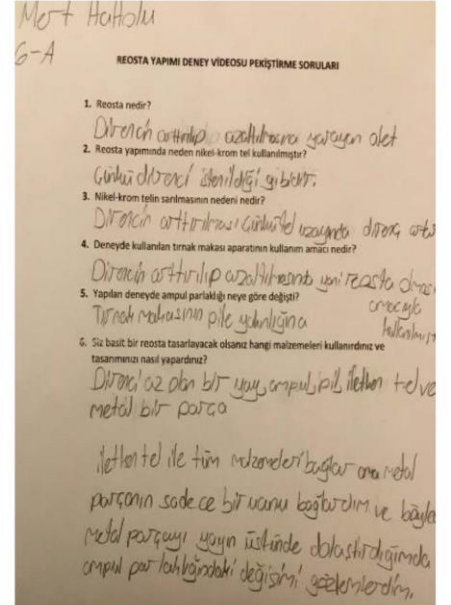 Mert Hattolu
6-A
REOSTA YAPIMI DENEY VİDEOSU PEKİŞTİRME SORULARI
1. Reosta nedir?
Direncin arttırılıp azaltılmasına yarayan alet
2. Reosta yapımında neden nikel-krom tel kullanılmıştır?
Çünkü direnci istenildiği gibidir.
3. Nikel-krom telin sarılmasının nedeni nedir?
Direncin arttırılması çünkü tel uzayında direnç artar
4. Deneyde kullanılan tırnak makası aparatının kullanım amacı nedir?
Direncin arttırılıp azaltılmasında yani reosta olması
amacıyla
kullanılmıştır
5. Yapılan deneyde ampul parlaklığı neye göre değişti?
Tırnak makasının pile yakınlığına
6. Siz basit bir reosta tasarlayacak olsanız hangi malzemeleri kullanırdınız ve
tasarımınızı nasıl yapardınız?
Direnci az olan bir yay, ampul, pil, iletken tel ve
metal bir parça
iletken tel ile tüm malzemeleri bağlar ama metal
parçanın sadece bir ucunu bağlardım ve böyle
metal parçayı yayın üstünde dolaştırdığımda
ampul parlaklığındaki değişimi gözlemlerdim.